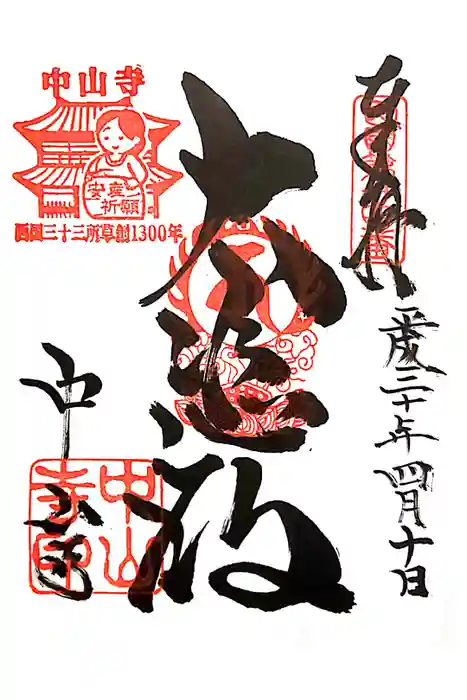 奉拝
平成三十年四月十日
大悲殿
中山寺
中山寺
安産
祈願
西国三十三所草創1300年
中山寺印